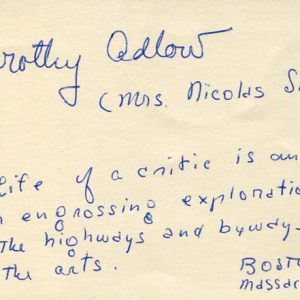 rothy Adlow
(Mrs. Nicolas S
life of a critic is an
n engrossing exploratio
the highways and byways
the arts.
BOST
Massac